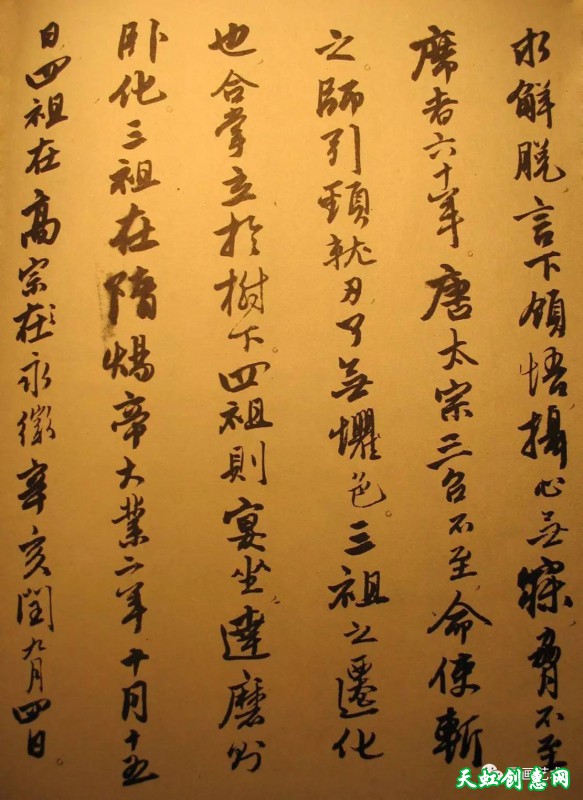 求解脱言下领悟摄心无寐胁不至
席者六十年唐太宗三召不至命使斩
之师引颈就刃了无惧色三祖之迁化
也合掌立於树下四祖则宴坐达磨则
卧化三祖在隋炀帝大业二年十月十五
日四祖在高宗在永徽辛亥闰九月四日
天虹创意网